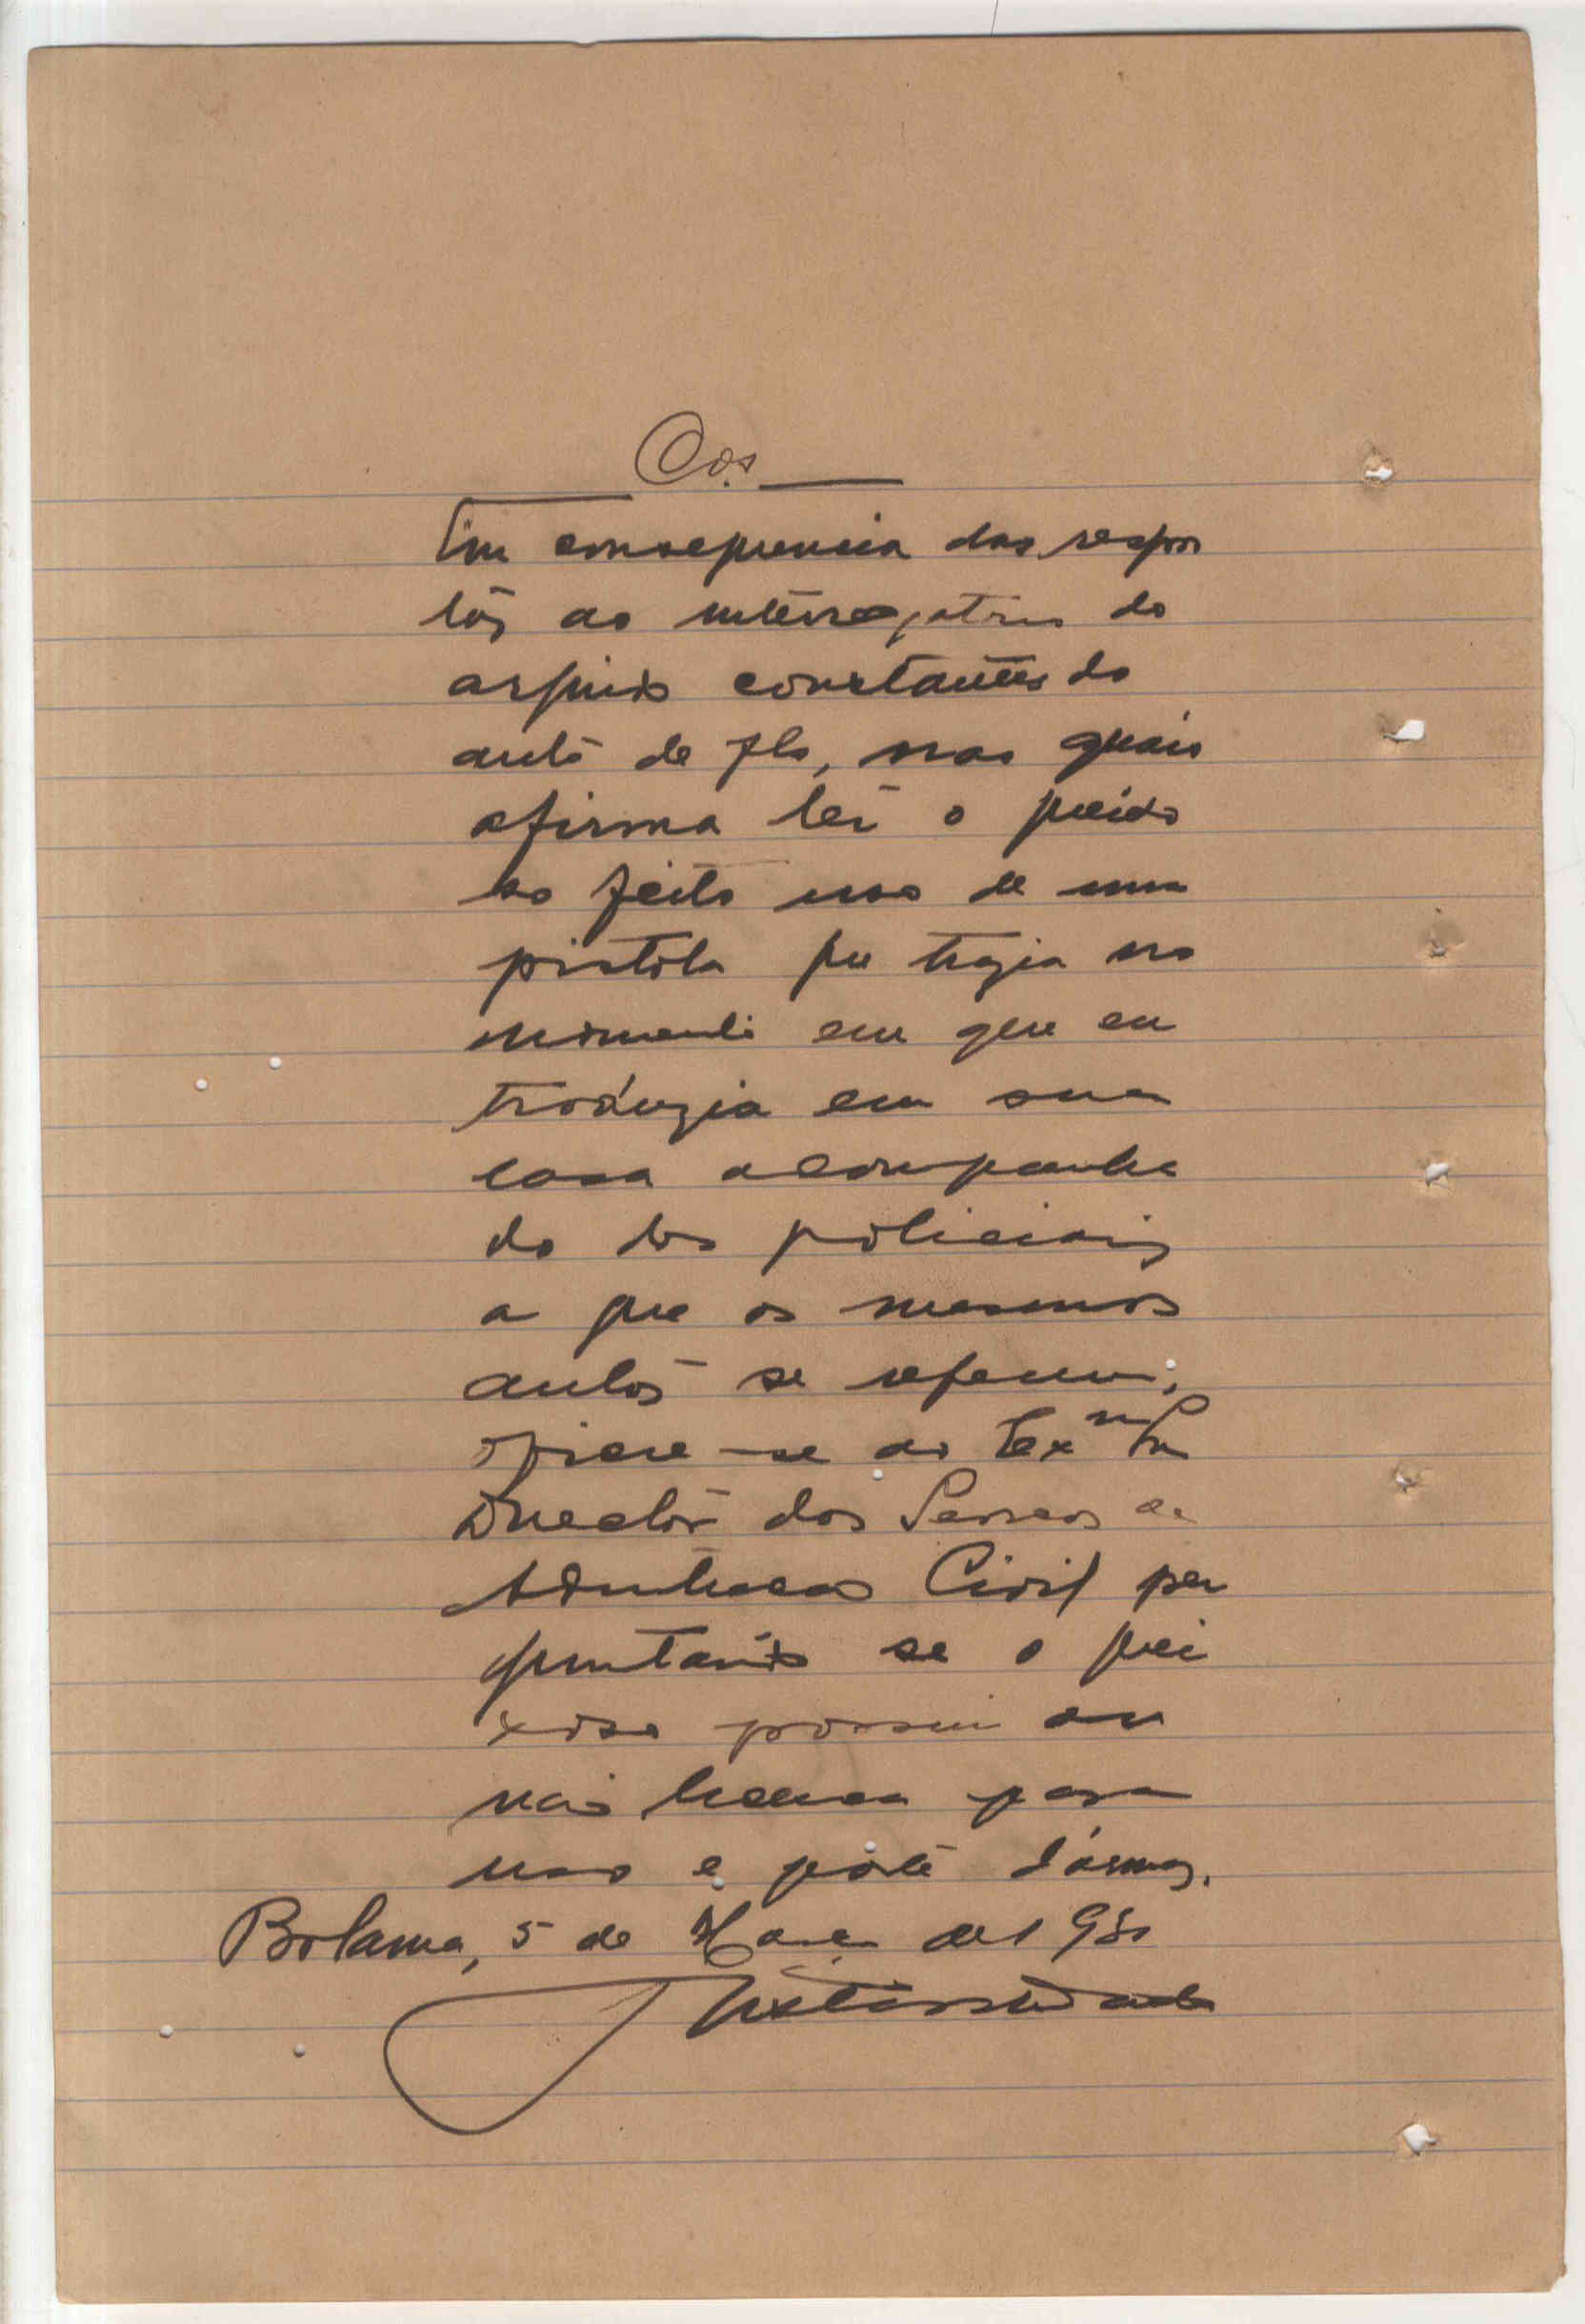 Cos
Em consequencia das respos
tas ao interrogatorio do
arguido constantes do
auto de fls, nas quais
afirma ter o queixo
so feito uso de uma
pistola que trazia no
momento em que en
troduzia em sua
casa acompanha
do dos policiais
a que os mesmos
autos se referem;
oficie-se ao Exmo Sr
Director dos Servicos de
Admtracao Civil per
guntando se o quei
xoso possui ou
não licença para
uso e porte d'armas.
Bolama, 5 de de 19